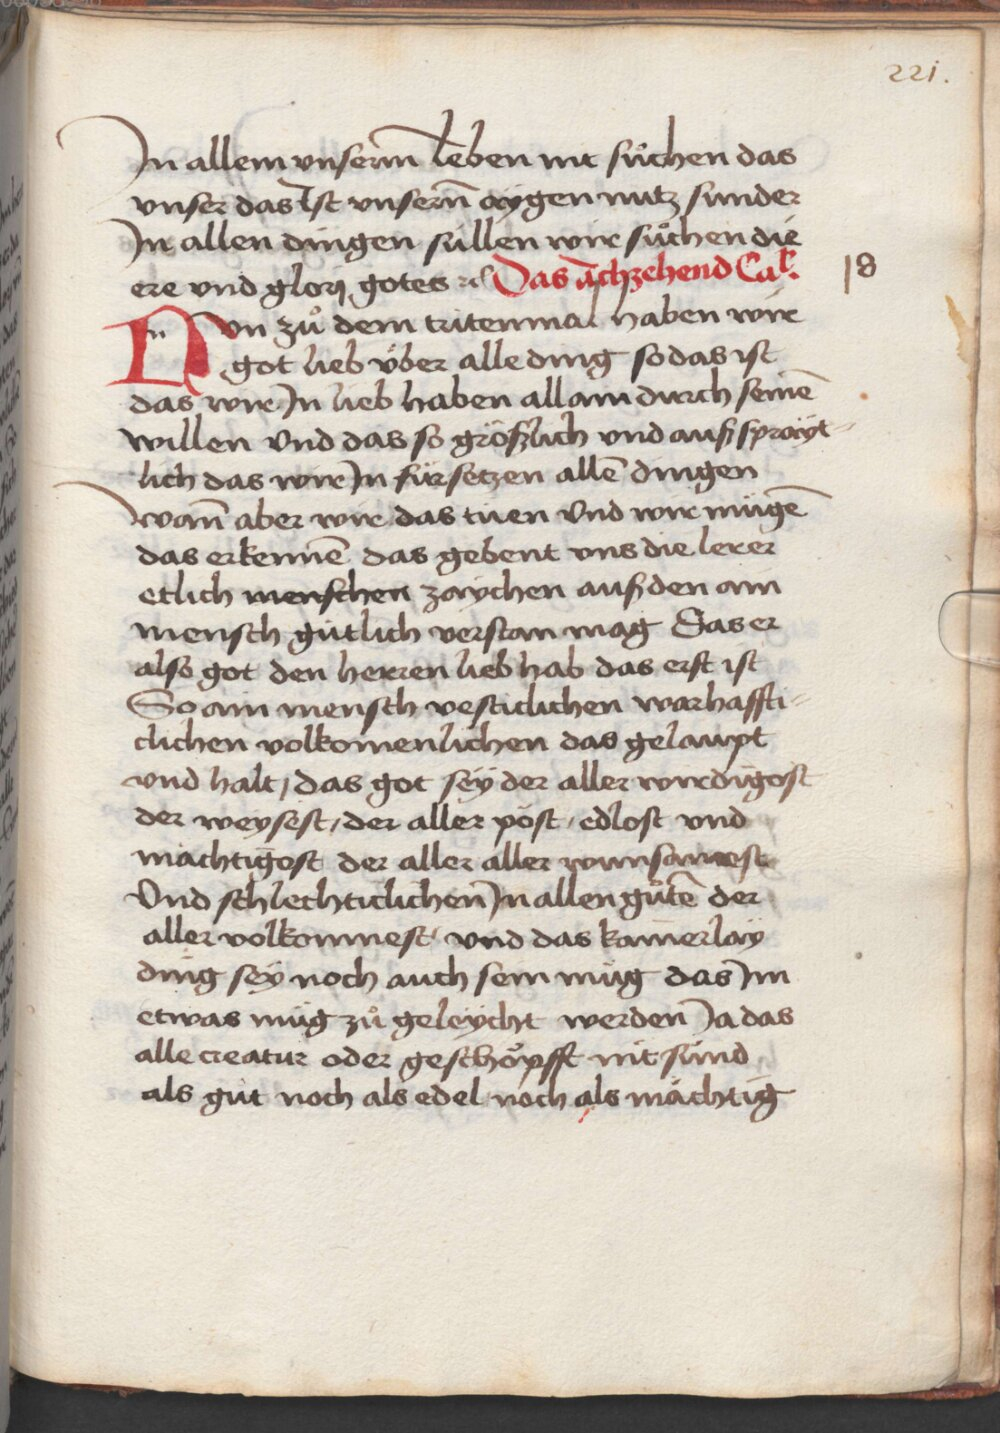 221.
In allem vnserm̄ leben nit sůchen das
vnser das Ist vnserm̄ aygen nutz sunder
In allen dingen süllen wir sůchen die
ere vnd glorj gotes ꝛc̄ Das achzehend Cap̄.
18
Nvn zů dem tritenmal haben wir
got lieb vber alle ding so das ist
das wir In lieb haben allain durch seinē
willen vnd das so größlich vnd außsprayt-
lich das wir In fürsetzen allē dingen
wann̄ aber wir das tuen vnd wir mügē
das erkennē das gebent vns die lerer
etlich menschen zaychen auß den ain
mensch gütlich verstan mag Das er
also got den herren lieb hab das erst ist
So ain mensch vesticlichen warhaffti-
clichen volkomenlichen das gelaupt
vnd halt / das got sey der aller wirdigost
der weysest / der aller pöst / edlost vnd
mächtigost der aller aller wunsamest
Vnd schlechticlichen̄ In allen gůtē der
aller volkomnest / vnd das kainerlay
ding sey noch auch sein müg das Im
etwas müg zů geleycht werden Ja das
alle creatur oder geschöpfft nit sünd
als güt noch als edel noch als mächtig